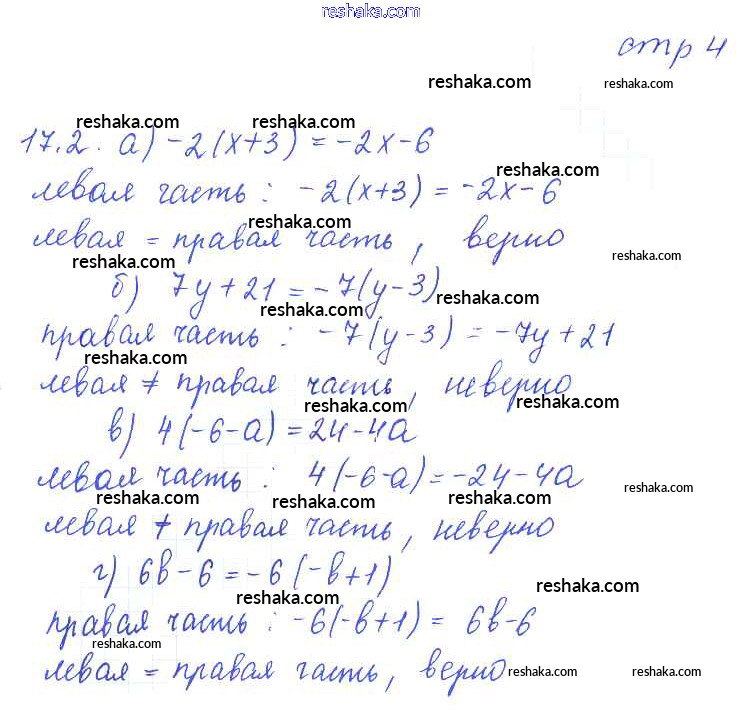 reshaka.com
стр 4
reshaka.com reshaka.com
reshaka.com reshaka.com
17.2. а) -2(x+3) = -2x-6
reshaka.com
левая часть : -2(x+3) = -2x-6
reshaka.com
левая = правая часть, верно
reshaka.com reshaka.com
б) 7y+21 = -7(y-3)
reshaka.com
reshaka.com
правая часть : -7(y-3) = -7y+21
reshaka.com
левая ≠ правая часть, неверно
reshaka.com reshaka.com
в) 4(-6-a) = 24-4a
левая часть : 4(-6-a) = -24-4a
reshaka.com
reshaka.com reshaka.com reshaka.com
левая ≠ правая часть, неверно
г) 6b-6 = -6(-b+1)
reshaka.com
reshaka.com
правая часть : -6(-b+1) = 6b-6
reshaka.com reshaka.com
левая = правая часть, верно
reshaka.com reshaka.com